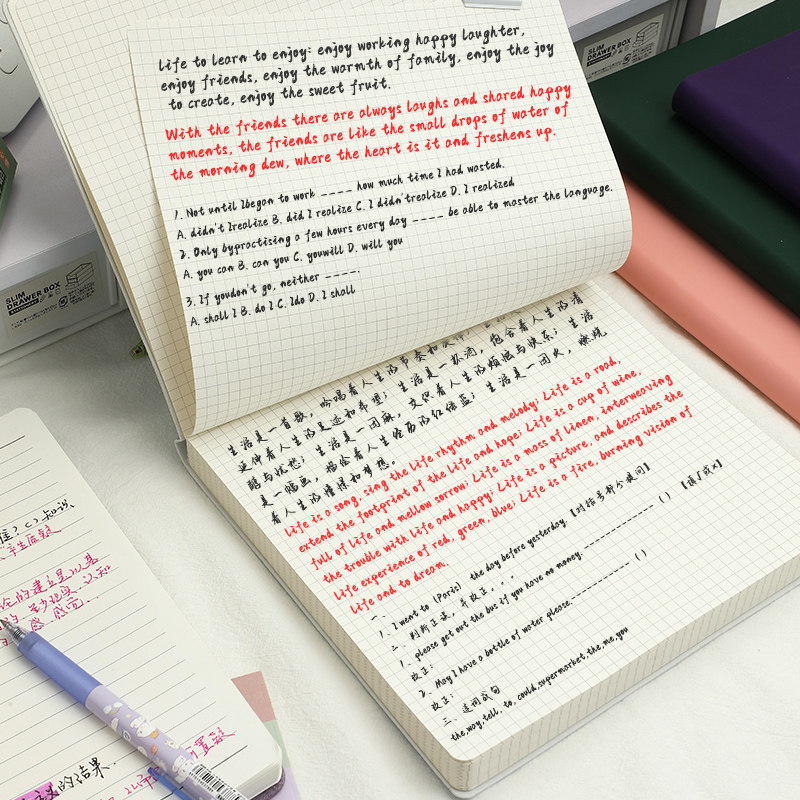 life to learn to enjoy: enjoy working happy laughter,
enjoy friends, enjoy the warmth of family, enjoy the joy
to create, enjoy the sweet fruit.
With the friends there are always laughs and shared happy
moments, the friends are like the small drops of water of
the morning dew, where the heart is it and freshens up.
1. Not until Ibegan to work _____ how much time I had wasted.
A. didn't Irealize B. did I realize C. I didn'trealize D. I realized
2. Only bypractising a few hours every day _____ be able to master the language.
A. you can B. can you C. youwill D. will you
3. If youdon't go, neither _____.
A. shall I B. do I C. Ido D. I shall
生活是一首歌，吟唱着人生的节奏和
延伸着人生的足迹和希望；生活是一杯酒，饱含着人生的清
醇与忧愁；生活是一团麻，交织着人生的烦恼与快乐；生活
是一幅画，描绘着人生经历的红绿蓝；生活是一团火，燃烧
着人生的憧憬和梦想。
Life is a song, sing the life rhythm and melody; Life is a road,
extend the footprint of the life and hope; Life is a cup of wine,
full of life and mellow sorrow; Life is a mass of linen, interweaving
the trouble with life and happy; Life is a picture, and describes the
life experience of red, green, blue; Life is a fire, burning vision of
life and to dream.
一、
1. I went to (Paris) the day before yesterday.【对括号部分提问】
二、判断正误，并改正。
1. please get out the bus if you have no money. ( ) 【填√或×】
改正：
2. May I have a bottle of water please. ( )
改正：
三、连词成句
the,way,tell, to, could,supermarket,the,me,you
SLIM
DRAWER BOX
SLIM
DRAWER BOX
的结果.